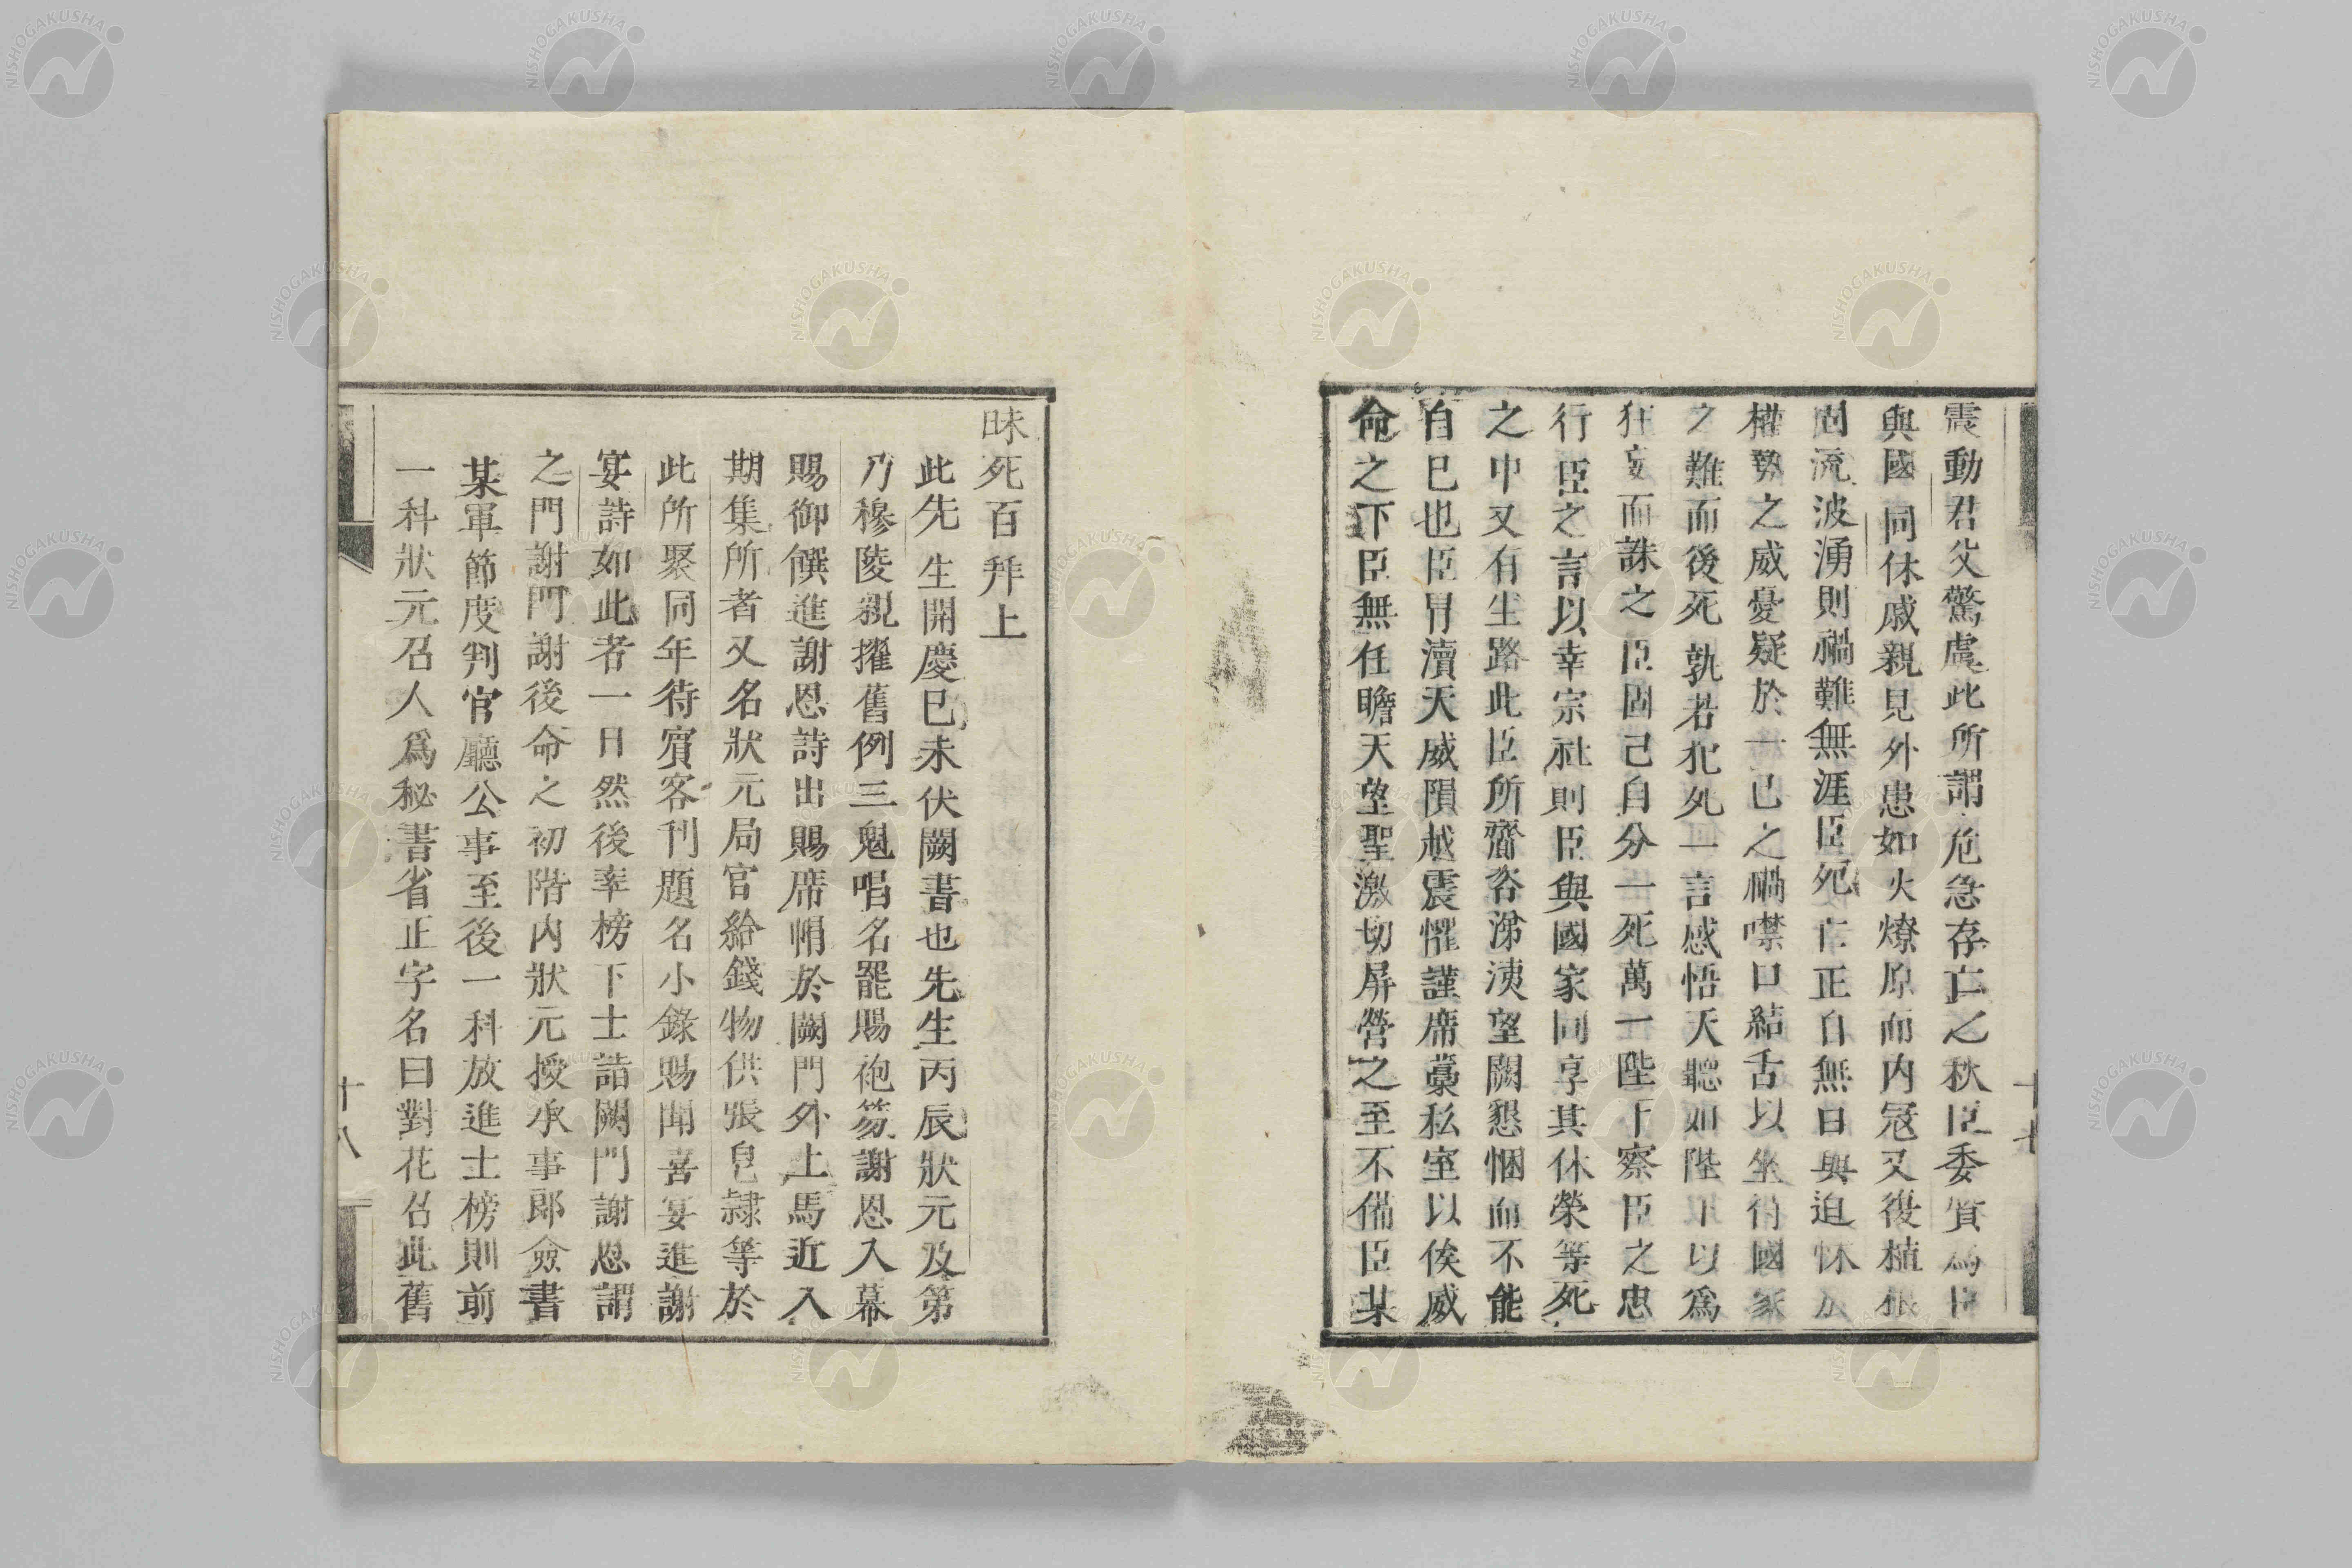 震動君父驚虞此所謂危急存亡之秋臣委質為臣
與國同休戚親見外患如火燎原而内冦又復植根
固流波湧則禍難無涯臣死亡正自無日與迫怵於
權勢之威憂疑於一己之禍噤口結舌以坐待國家
之難而後死孰若犯死一言感悟天聽如陛下以爲
狂妄而誅之臣固己自分一死萬一陛下察臣之忠
行臣之言以幸宗社則臣與國家同享其休榮等死
之中又有生路此臣所齎咨涕洟望闕懇悃而不能
自已也臣冐瀆天威隕越震懼謹席藁私室以俟威
命之下臣無任瞻天望聖激切屏營之至不備臣某
十七
昧死百拜上
此先生開慶已未伏闕書也先生丙辰狀元及第
乃穆陵親擢舊例三魁唱名罷賜袍笏謝恩入幕
賜御饌進謝恩詩出賜席帽於闕門外上馬近入
期集所者又名狀元局官給錢物供張皂隸等於
此所聚同年待賓客刊題名小錄賜聞喜宴進謝
宴詩如此者一日然後率榜下士詣闕門謝恩謂
之門謝門謝後命之初階内狀元授承事郎僉書
某軍節度判官廳公事至後一科放進士榜則前
一科狀元召人爲秘書省正字名曰對花召此舊
十八
NISHOGAKUSHA